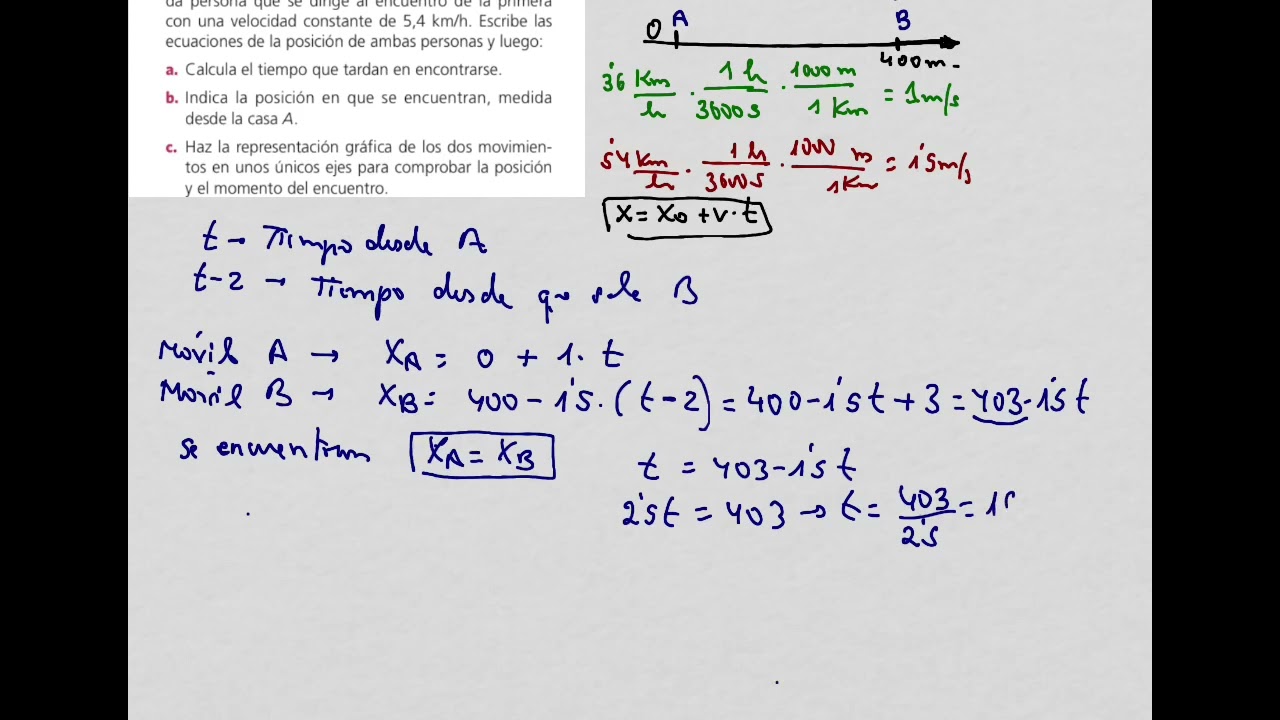 da persona que se dirige al encuentro de la primera
con una velocidad constante de 5,4 km/h. Escribe las
ecuaciones de la posición de ambas personas y luego:
a. Calcula el tiempo que tardan en encontrarse.
b. Indica la posición en que se encuentran, medida
desde la casa A.
c. Haz la representación gráfica de los dos movimien-
tos en unos únicos ejes para comprobar la posición
y el momento del encuentro.
O A B
400m.
3'6 Km/h · 1h/3600s · 1000m/1Km = 1m/s
5'4 Km/h · 1h/3600s · 1000 m/1Km = 1'5m/s
x = x0 + v·t
t → Tiempo desde A
t-2 → Tiempo desde que sale B
Móvil A → XA = 0 + 1· t
Móvil B → XB = 400 - 1'5·(t-2) = 400-1'5t + 3 = 403-1'5t
se encuentran XA = XB
t = 403-1'5t
2'5t = 403 → t = 403/2'5 = 1